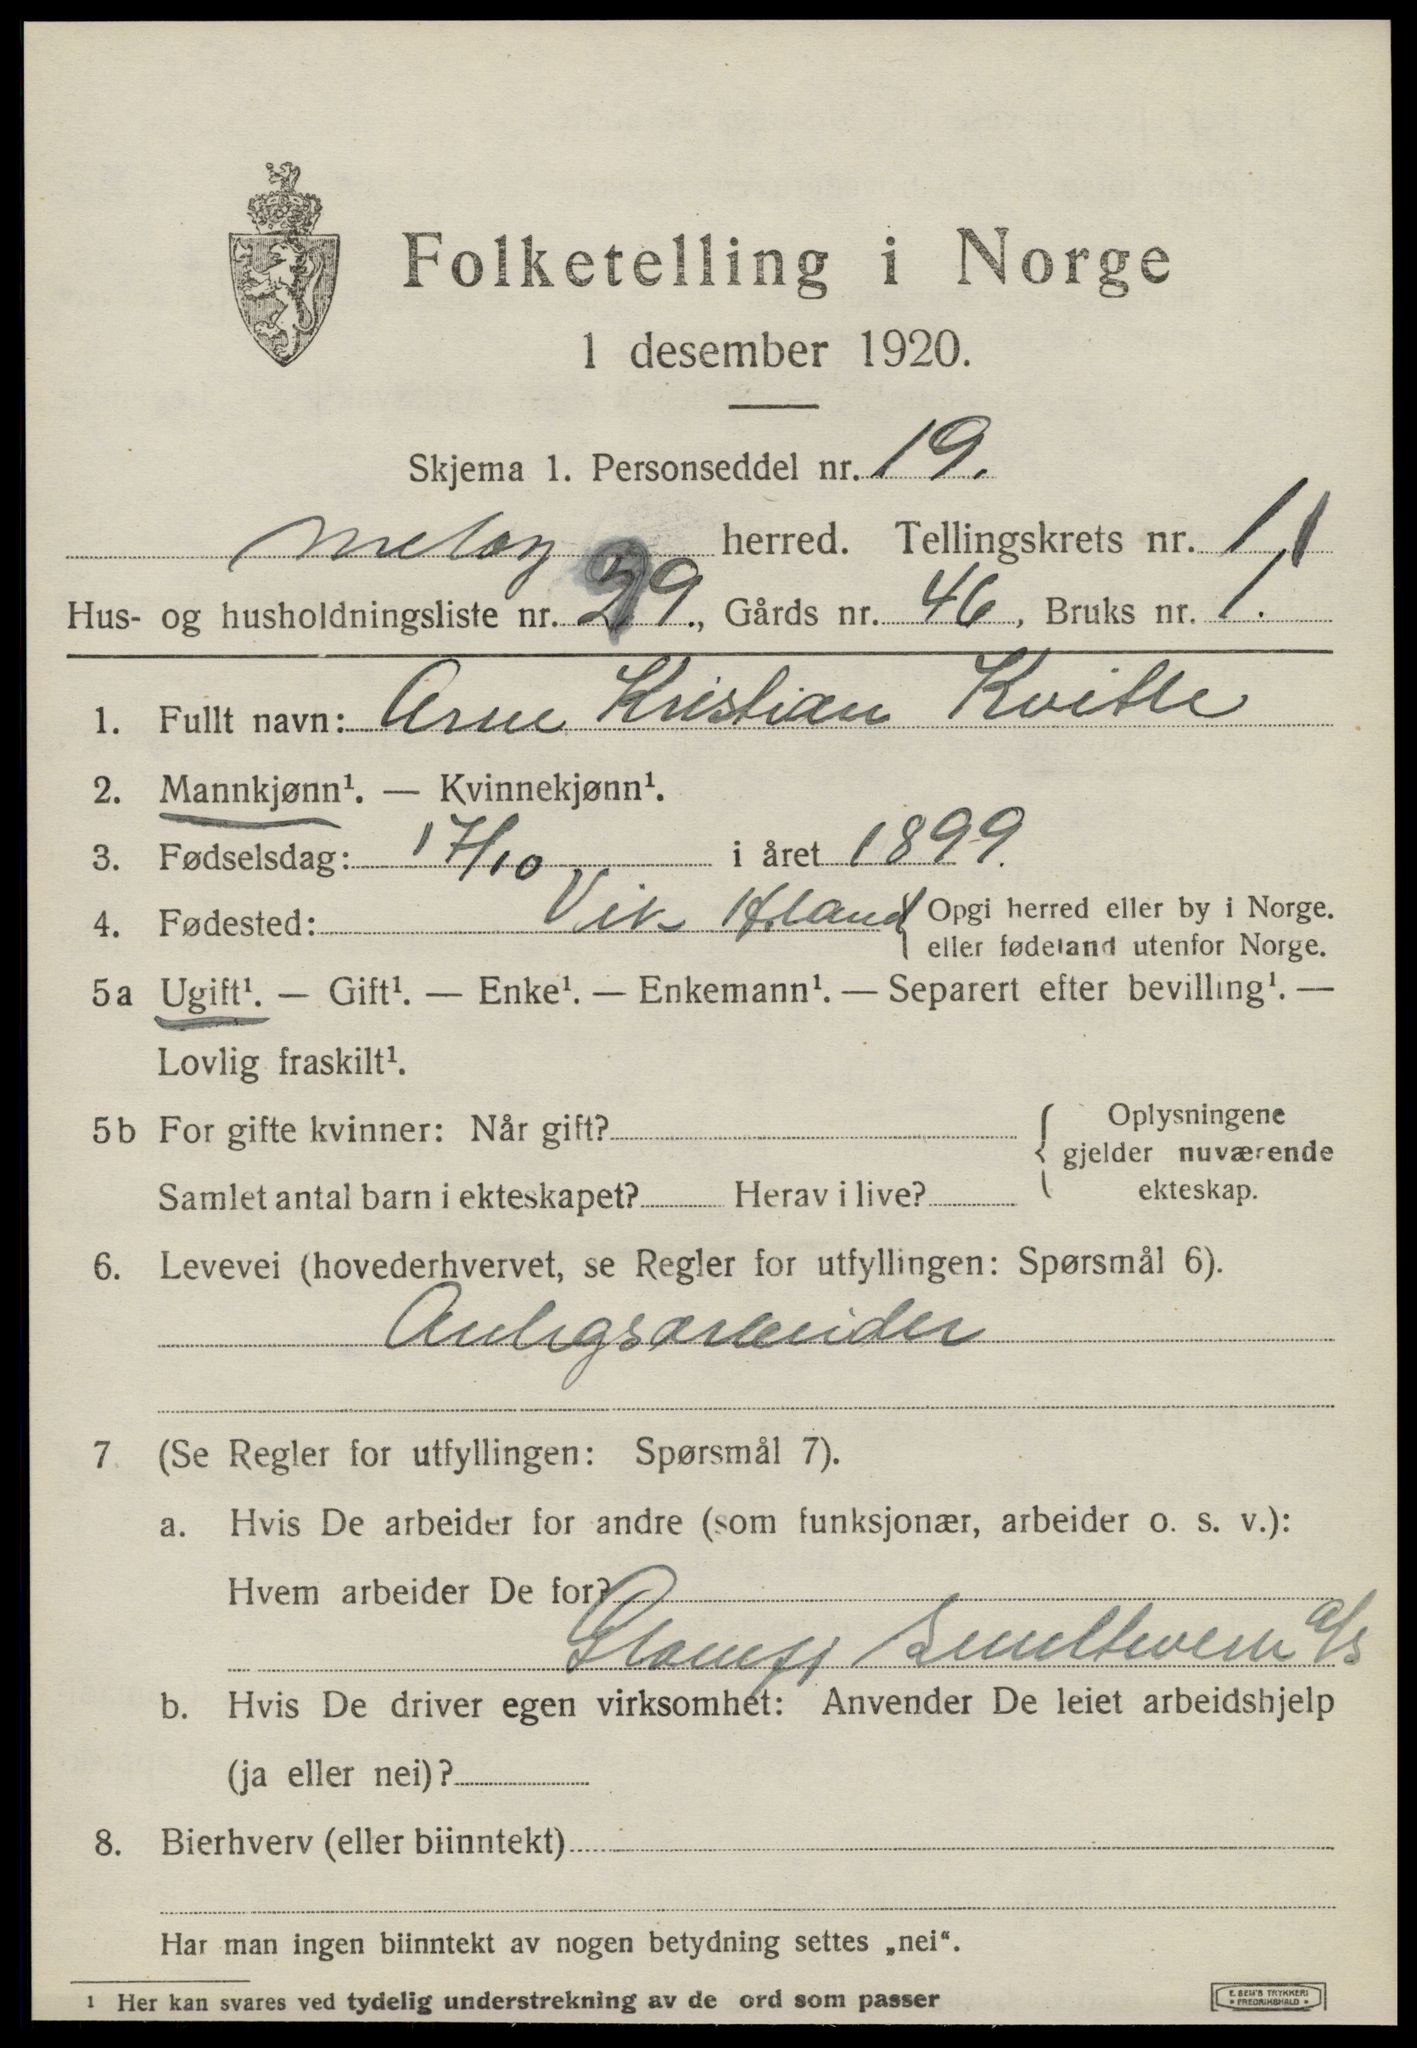 Folketelling i Norge
1 desember 1920.
Skjema 1. Personseddel nr. 19.
Meløy herred. Tellingskrets nr. 11
Hus- og husholdningsliste nr. 39., Gårds nr. 46, Bruks nr. 1.
1. Fullt navn: Arne Kristian Kvitle
2. Mannkjønn¹. — Kvinnekjønn¹.
3. Fødselsdag: 17/10 i året 1899.
4. Fødested: Vik H.land { Opgi herred eller by i Norge.
eller fødeland utenfor Norge.
5a Ugift¹. — Gift¹. — Enke¹. — Enkemann¹. — Separert efter bevilling¹. —
Lovlig fraskilt¹.
5b For gifte kvinner: Når gift?
Samlet antal barn i ekteskapet? Herav i live?
Oplysningene
gjelder nuværende
ekteskap.
6. Levevei (hovederhvervet, se Regler for utfyllingen: Spørsmål 6).
Anlegsarbeider
7 (Se Regler for utfyllingen: Spørsmål 7).
a. Hvis De arbeider for andre (som funksjonær, arbeider o. s. v.):
Hvem arbeider De for?
Glomfj Smelteverk a/s
b. Hvis De driver egen virksomhet: Anvender De leiet arbeidshjelp
(ja eller nei)?
8. Bierhverv (eller biinntekt)
Har man ingen biinntekt av nogen betydning settes „nei“.
¹ Her kan svares ved tydelig understrekning av de ord som passer
E. SEM'S TRYKKERI
FREDRIKSHALD